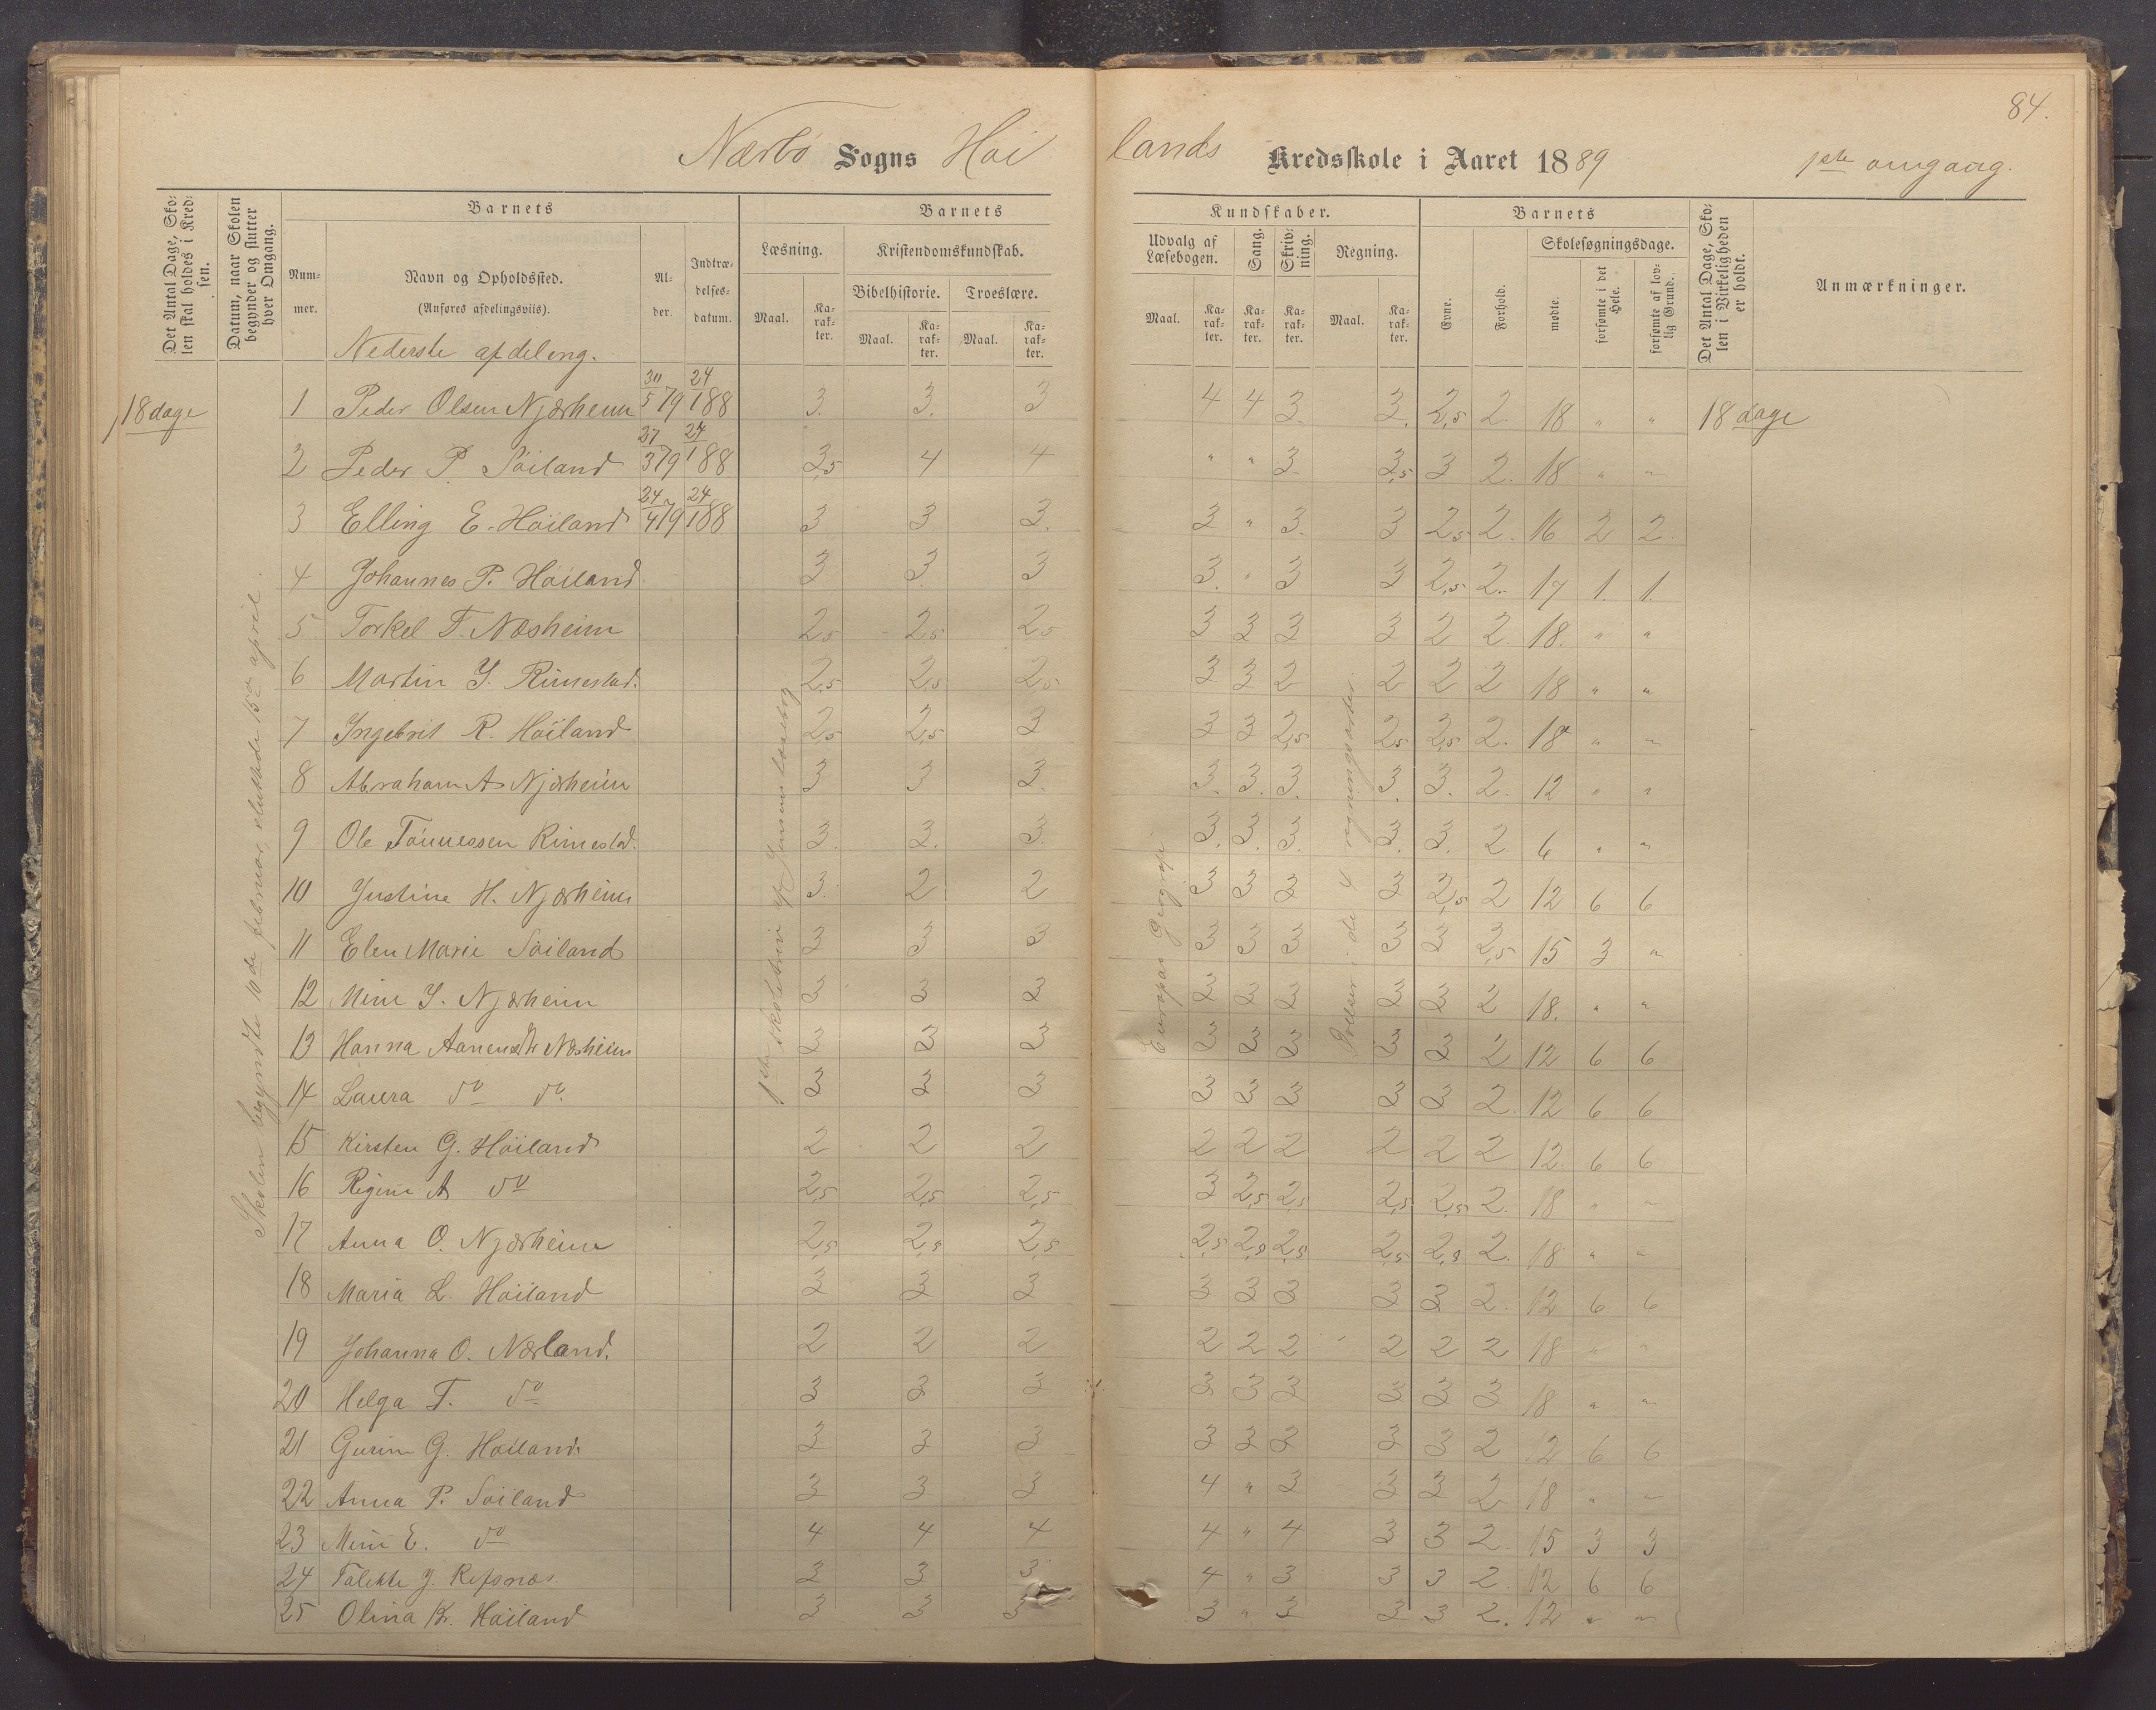 84.
Nærbø Sogns Høi lands Kredsskole i Aaret 1889 1ste omgang.
Det Antal Dage, Skolen skal holdes i Kredsen.
Datum, naar Skolen begynder og slutter hver Omgang.
Barnets
Nummer.
Navn og Opholdssted.
(Anføres afdelingsviis).
Alder.
Indtrædelsesdatum.
Barnets Kundskaber.
Læsning.
Maal. Karakter.
Kristendomskundskab.
Bibelhistorie. Troeslære.
Maal. Karakter. Maal. Karakter.
Udvalg af Læsebogen.
Maal. Karakter.
Sang. Karakter.
Skrivning. Karakter.
Regning.
Maal. Karakter.
Barnets
Evne. Forhold.
Skolesøgningsdage.
mødte. forsømte i det Hele. forsømte af lovlig Grund.
Det Antal Dage, Skolen i Virkeligheden er holdt.
Anmærkninger.
Nederste afdeling.
18 dage
Skolen begyndte 10de februar, sluttede 15de april.
1ste skoletrin af Jensens læsebog
Europas Geografi
Øvelser i de 4 regningsarter.
1 Peder Olsen Njærheim 30/5 79 24/1 88 3. 3. 3 4 4 3. 3. 2,5 2. 18 " " 18 dage
2 Peder P. Söiland 27/3 79 24/1 88 3,5 4 4 " " 3. 3,5 3 2. 18 " "
3 Elling E. Höiland 24/4 79 24/1 88 3 3 3. 3 " 3. 3 2,5 2. 16 2 2.
4 Johannes P. Höiland. 3 3. 3 3. " 3 3 2,5 2. 17 1. 1.
5 Torkel T. Næsheim 2,5 2,5 2,5 3 3 3 3 2 2. 18. " "
6 Martin Y. Rimestad. 2,5 2,5 2,5 3 3 2 2 2 2 18 " "
7 Ingebrit R. Höiland 2,5 2,5 3 3 3 2,5 2,5 2,5 2. 18 " "
8 Abraham A Njærheim 3 3 3. 3. 3. 3. 3. 3. 2. 12 " "
9 Ole Tönnessen Rimestad. 3. 3. 3. 3. 3. 3. 3. 3. 2. 6 " "
10 Justine H. Njærheim 3. 2 2 3 3 3 3 2,5 2 12 6 6
11 Elen Marie Söiland 3 3 3 3 3 3 3 3 2,5 15 3 "
12 Mine Y. Njærheim 3 3 3 3 3 3 3 3 2 18. " "
13 Hanna Aanensdtr Næsheim 3 3 3 3 3 3 3 3 2 12 6 6
14 Laura do do. 3 3 3 3 3 3 3 3 2. 12 6 6
15 Kirsten G. Höiland 2 2 2 2 2 2 2 2 2 12 6 6
16 Regine A do 2,5 2,5 2,5 3 2,5 2,5 2,5 2,5 2. 18 " "
17 Anna O. Njærheim 2,5 2,5 2,5 2,5 2,5 2,5 2,5 2,5 2. 18 " "
18 Maria L. Höiland 3 3 3 3 3 3 3 3 2. 12 6 6
19 Johanna O. Nærland. 2 2 2 2 2 2 2 2 2 18 " "
20 Helga T. do 3 3 3 3 3 3 3 3 3 18 " "
21 Gurine G. Höiland. 3 3 3 3 3 3 3 3 2 12 6 6
22 Anna P. Söiland 3 3 3 4 " 3 3 3 2 18 " "
23 Mine E. do 4 4 4 4 " 4 3 3 2. 15 3 3
24 Talette J. Refsnæs. 3 3 3 4 " 3 3 3 2. 12 6 6
25 Olina Kr. Höiland 3 3 3 3 " 3 3 3 2. 12 " "